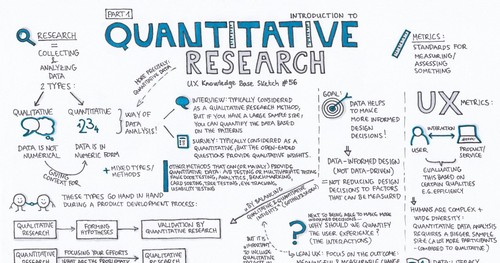 PART 1
INTRODUCTION TO
QUANTITATIVE
RESEARCH
UX Knowledge Base Sketch #56
RESEARCH
=
COLLECTING
&
ANALYZING
DATA
2 TYPES:
QUALITATIVE
DATA IS NOT
NUMERICAL
QUANTITATIVE
1234
DATA IS IN
NUMERIC FORM
MORE PRECISELY:
QUANTITATIVE DATA
WAY OF
DATA
ANALYSIS!
GIVING
CONTEXT FOR
+ MIXED TYPES/
METHODS
INTERVIEW: TYPICALLY CONSIDERED
AS A QUALITATIVE RESEARCH METHOD,
BUT IF YOU HAVE A LARGE SAMPLE SIZE,
YOU CAN QUANTIFY THE DATA BASED
ON THE PATTERNS
SURVEY: TYPICALLY CONSIDERED AS
QUANTITATIVE, BUT THE OPEN-ENDED
QUESTIONS PROVIDE QUALITATIVE INSIGHTS.
OTHER METHODS THAT CAN (OR MAINLY) PROVIDE
QUANTITATIVE DATA: A/B TESTING OR MULTIVARIATE TESTING,
TREE TESTING, ANALYTICS, BENCHMARKING,
CARD SORTING, TREE TESTING, EYE TRACKING,
USABILITY TESTING
THESE TYPES GO HAND IN HAND
DURING A PRODUCT DEVELOPMENT PROCESS:
QUALITATIVE
RESEARCH
FORMING
HYPOTHESES
VALIDATION BY
QUANTITATIVE RESEARCH
QUANTITATIVE
RESEARCH
FOCUSING YOUR EFFORTS
QUALITATIVE
RESEARCH
BY BALANCING
QUALITATIVE & QUANTITATIVE
BUT IT'S
IMPORTANT TO
INCLUDE
GOAL:
DATA HELPS
TO MAKE
MORE INFORMED
DESIGN
DECISIONS!
DATA-INFORMED DESIGN
(NOT DATA-DRIVEN)
NOT REDUCING DESIGN
DECISIONS TO FACTORS
THAT CAN BE MEASURED
WHY SHOULD WE QUANTIFY
THE USER EXPERIENCE?
(THE INTERACTIONS)
LEAN UX: FOCUS ON THE OUTCOME
METRICS:
STANDARDS FOR
MEASURING/
ASSESSING
SOMETHING
UX
METRICS:
USER
INTERACTION
PRODUCT/
SERVICE
EVALUATING
THIS BASED ON
CERTAIN QUALITIES
& EFFICIENCY
HUMANS ARE COMPLEX +
WIDE DIVERSITY:
QUANTITATIVE DATA ANALYSIS
REQUIRES A BIGGER SAMPLE
SIZE (AKA MORE PARTICIPANTS
- COMPARED TO QUALITATIVE)
DATA LITERACY